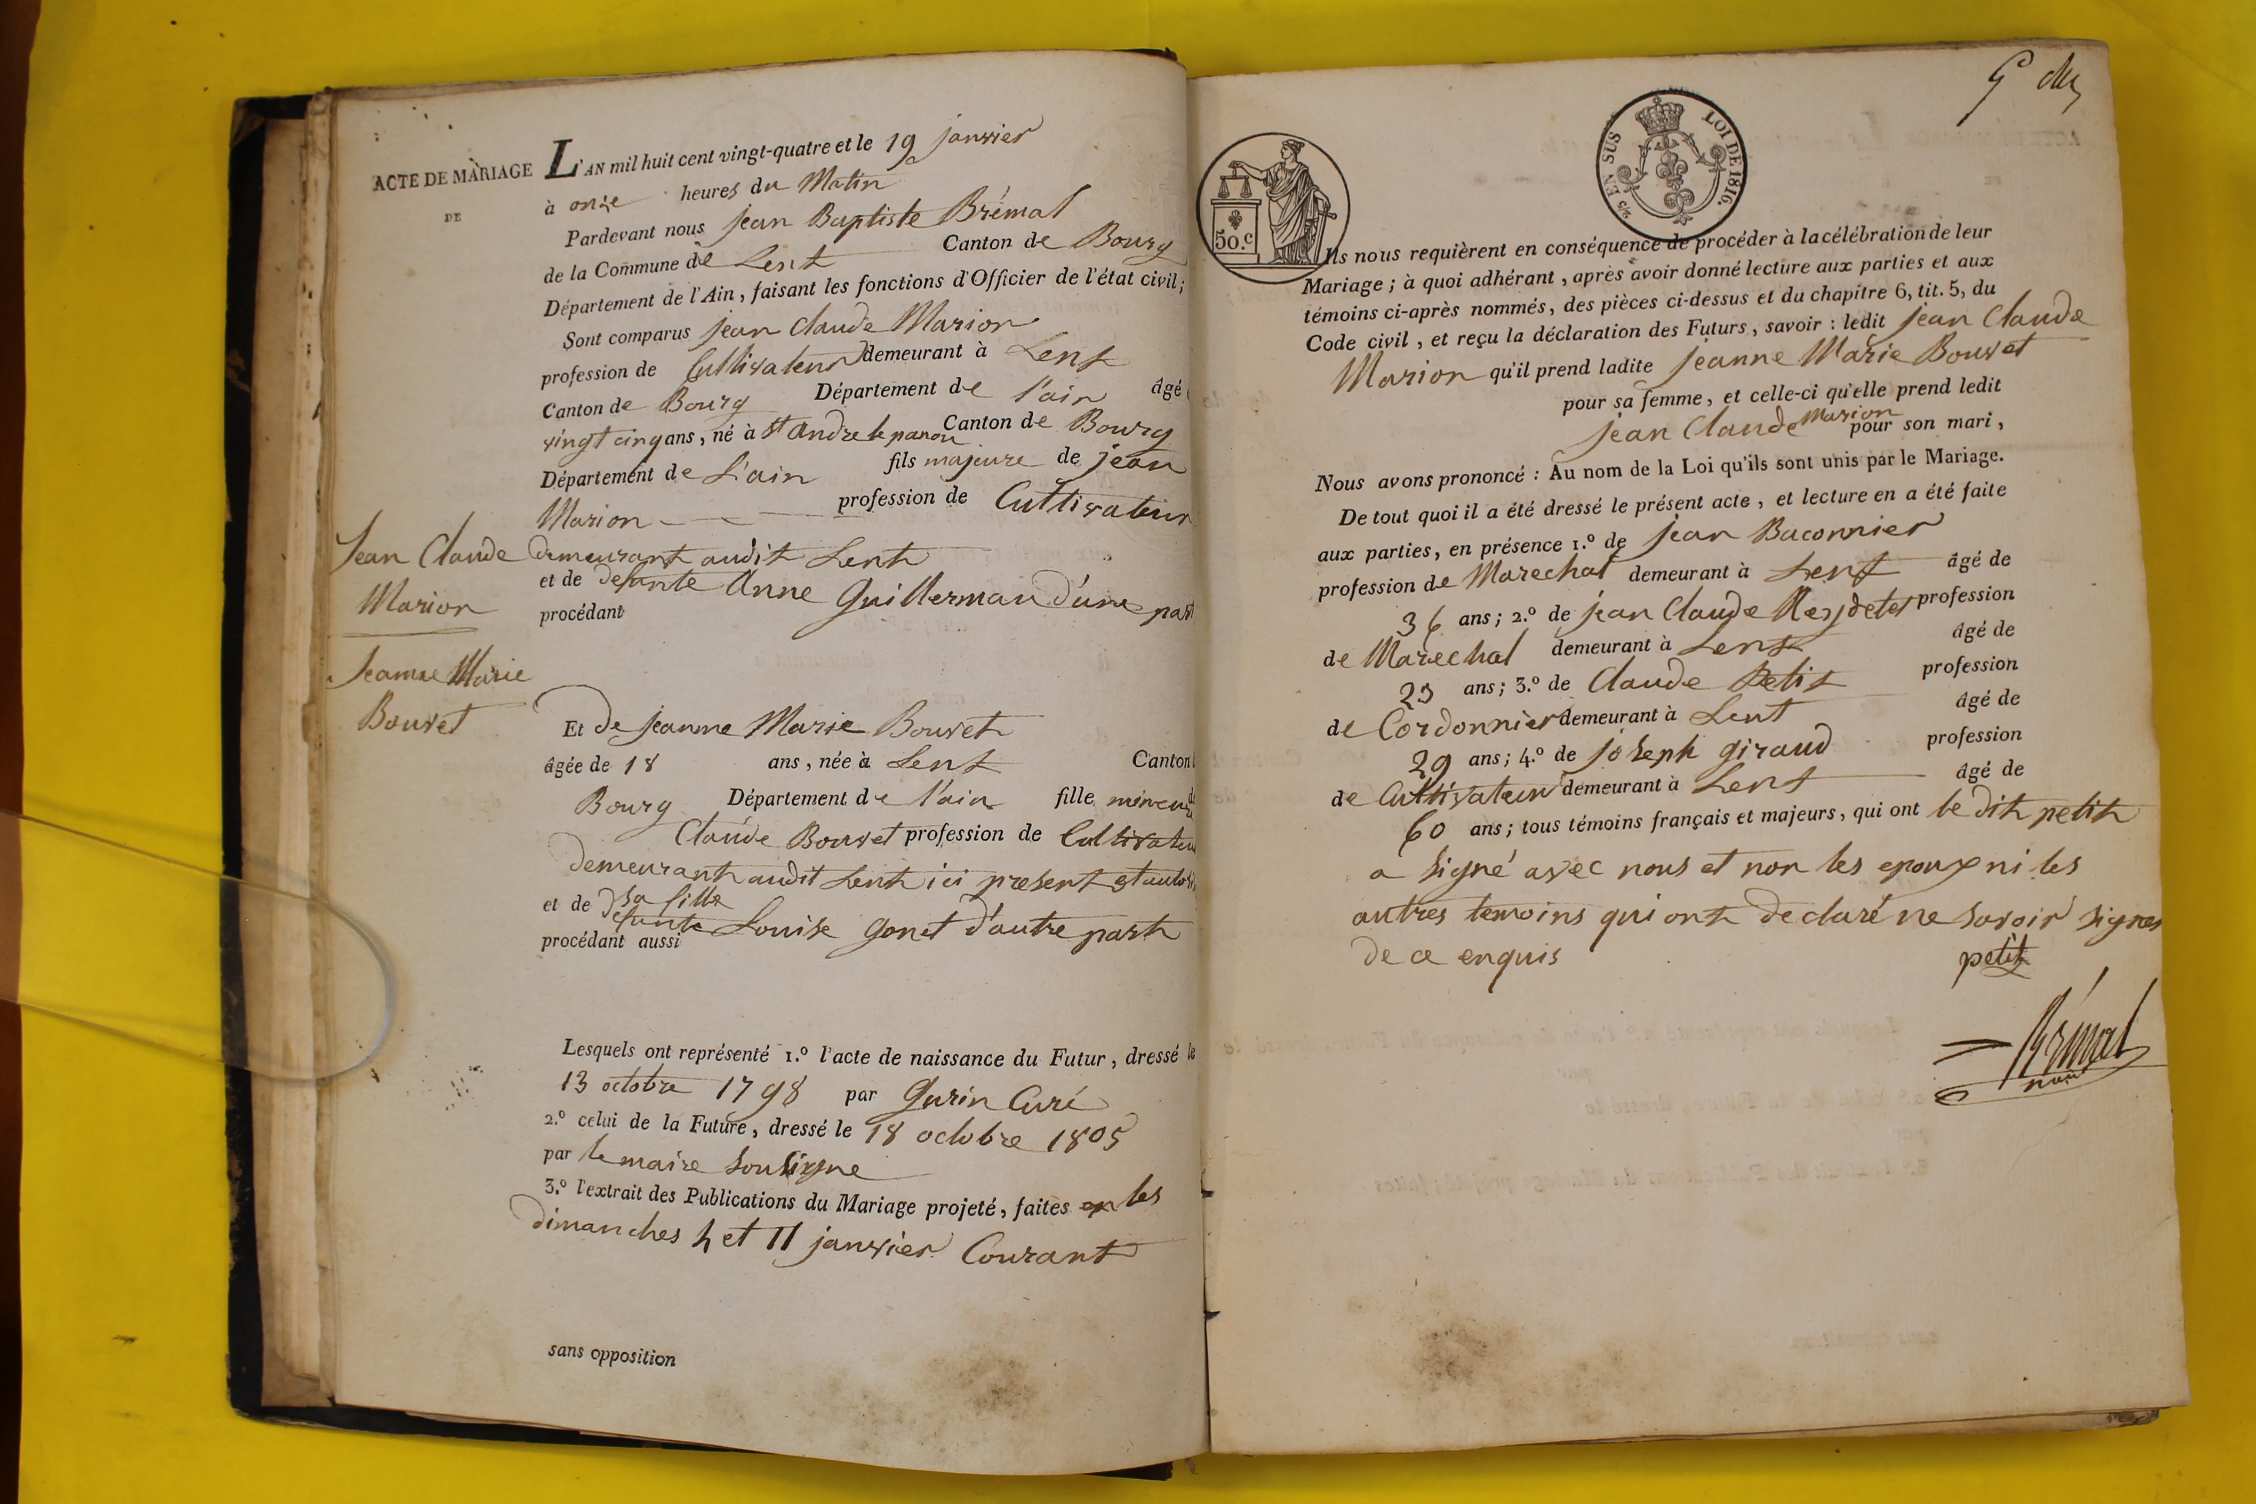 ACTE DE MARIAGE
DE
Jean Claude
Marion
Jeanne Marie
Bouvet
L'AN mil huit cent vingt-quatre et le 19 janvier
à onze heures du Matin
Pardevant nous jean Baptiste Brémal
de la Commune de Lent Canton de Bourg
Département de l'Ain, faisant les fonctions d'Officier de l'état civil;
Sont comparus jean Claude Marion
profession de Cultivateur demeurant à Lent
Canton de Bourg Département de l'ain âgé
vingt cinq ans, né à St andre le panou Canton de Bourg
Département de L'ain fils majeure de jean
Marion profession de Cultivateur
demeurant audit Lent
et de defunte Anne Guillerman d'une part
procédant
Et de jeanne Marie Bouvet
âgée de 18 ans, née à Lent Canton
Bourg Département de l'ain fille mineure
Claude Bouvet profession de Cultivateur
demeurant audit Lent ici present et
sa fille
et de defunte Louise gonet d'autre part
procédant aussi
Lesquels ont représenté 1.º l'acte de naissance du Futur, dressé le
13 octobre 1798 par Gurin Curé
2.º celui de la Future, dressé le 18 octobre 1805
par le maire sousigne
3.º l'extrait des Publications du Mariage projeté, faites les
dimanches 4 et 11 janvier Courant
sans opposition
50.c
EN SUS
LOI DE 1816.
Ils nous requièrent en conséquence de procéder à la célébration de leur
Mariage; à quoi adhérant, après avoir donné lecture aux parties et aux
témoins ci-après nommés, des pièces ci-dessus et du chapitre 6, tit. 5, du
Code civil, et reçu la déclaration des Futurs, savoir: ledit jean Claude
Marion qu'il prend ladite jeanne Marie Bouvet
pour sa femme, et celle-ci qu'elle prend ledit
jean Claude Marion pour son mari,
Nous avons prononcé: Au nom de la Loi qu'ils sont unis par le Mariage.
De tout quoi il a été dressé le présent acte, et lecture en a été faite
aux parties, en présence 1.º de jean Baconnier
profession de Marechal demeurant à Lent âgé de
36 ans; 2.º de jean Claude profession
de Marechal demeurant à Lent âgé de
23 ans; 3.º de Claude Petit profession
de Cordonnier demeurant à Lent âgé de
29 ans; 4.º de joseph giraud profession
de Cultivateur demeurant à Lent âgé de
60 ans; tous témoins français et majeurs, qui ont le dit petit
a signé avec nous et non les epoux ni les
autres temoins qui ont declaré ne savoir signer
de ce enquis
petit
Brémal